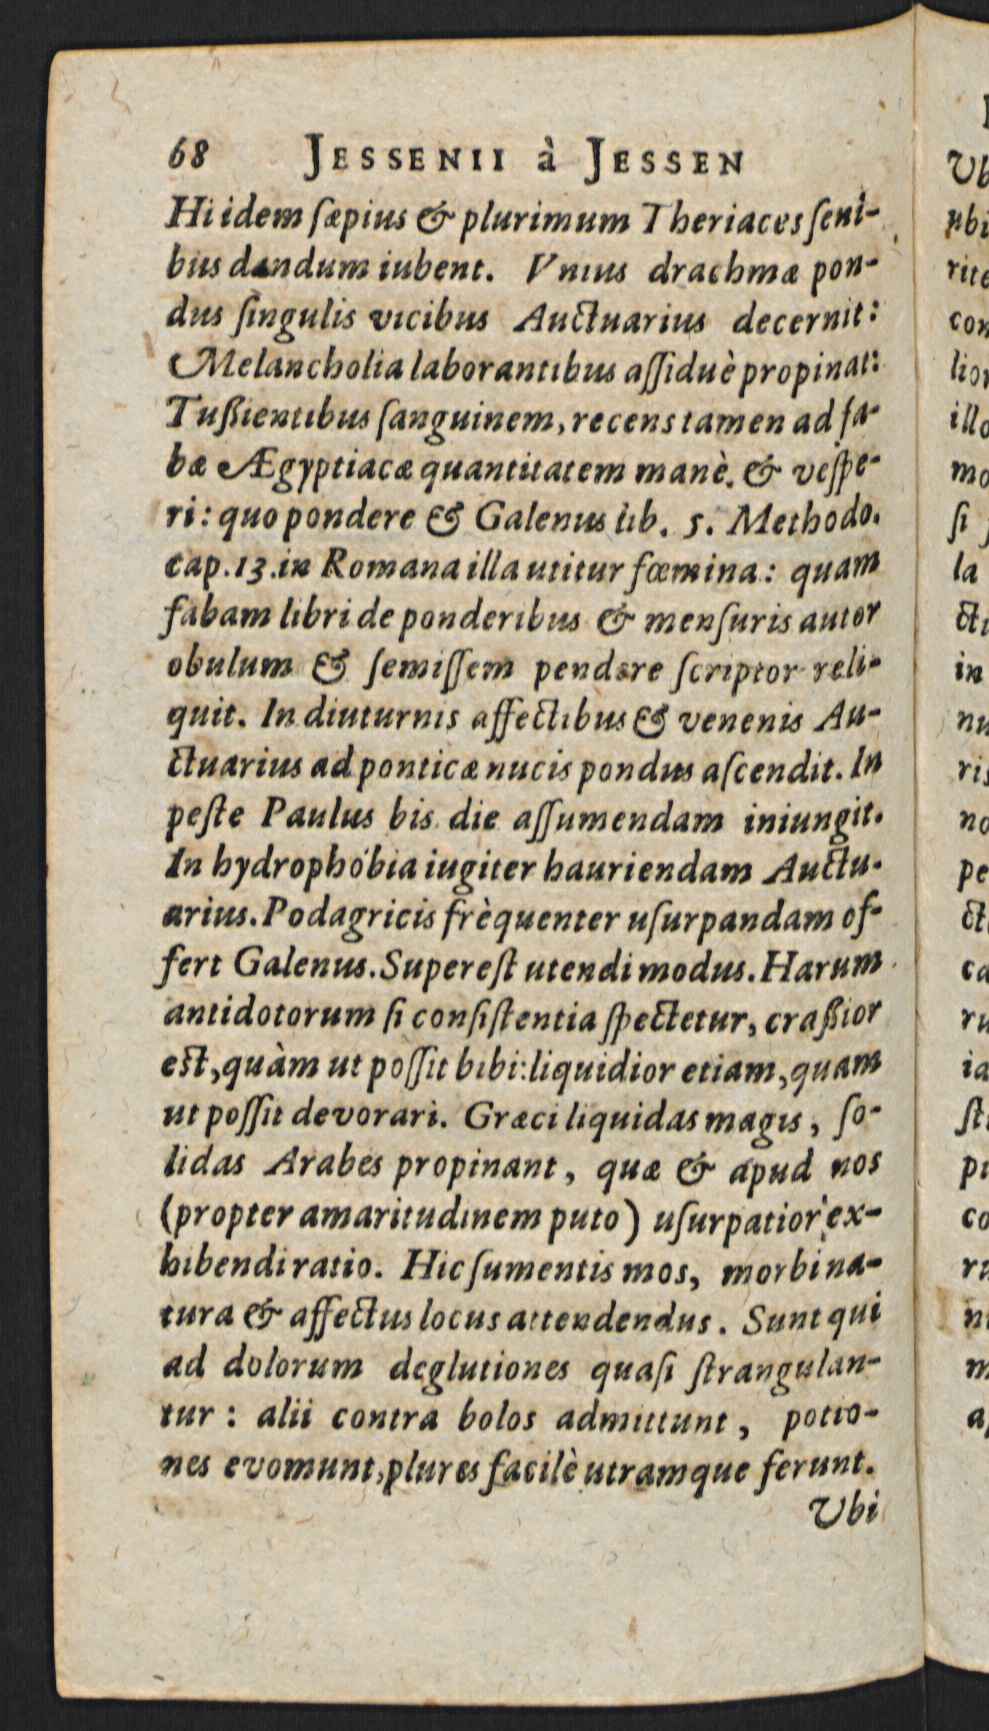 68 JESSENII à JESSEN
Hi idem ſæpius & plurimum Theriaces ſeni-
bus dandum iubent. Vnius drachmæ pon-
dus ſingulis vicibus Auctuarius decernit:
Melancholia laborantibus aſſiduè propinat:
Tußientibus ſanguinem, recens tamen ad fa-
bæ Ægyptiacæ quantitatem manè. & veſpe-
ri: quo pondere & Galenus lib. 5. Methodo.
cap. 13. in Romana illa utitur fœmina: quam
fabam libri de ponderibus & menſuris autor
obulum & ſemiſſem pendere ſcriptor reli-
quit. In diuturnis affectibus & venenis Au-
ctuarius ad ponticæ nucis pondus aſcendit. In
peſte Paulus bis die aſſumendam iniungit.
In hydrophobia iugiter hauriendam Auctu-
arius. Podagricis frèquenter uſurpandam of-
fert Galenus. Supereſt utendi modus. Harum
antidotorum ſi conſiſtentia ſpectetur, craßior
eſt, quàm ut poſſit bibi: liquidior etiam, quam
ut poſſit devorari. Græci liquidas magis, ſo-
lidas Arabes propinant, quæ & apud nos
(propter amaritudinem puto) uſurpatior ex-
hibendi ratio. Hic ſumentis mos, morbi na-
tura & affectus locus attendendus. Sunt qui
ad dolorum deglutiones quaſi ſtrangulan-
tur: alii contra bolos admittunt, potio-
nes evomunt, plures facilè utramque ferunt.
Ubi